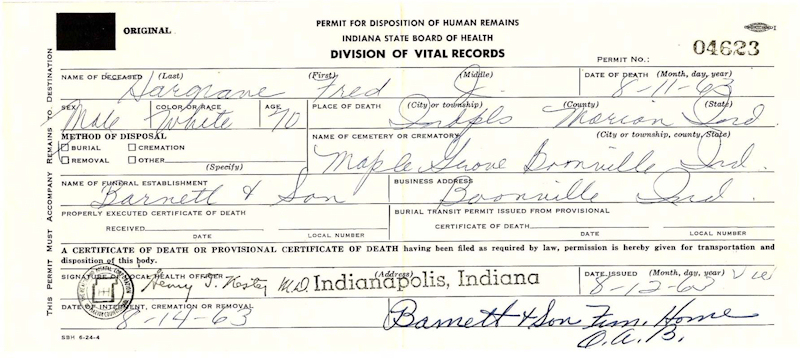 ORIGINAL
PERMIT FOR DISPOSITION OF HUMAN REMAINS
INDIANA STATE BOARD OF HEALTH
DIVISION OF VITAL RECORDS
PERMIT NO.: 04623
THIS PERMIT MUST ACCOMPANY REMAINS TO DESTINATION
NAME OF DECEASED (Last) (First) (Middle) DATE OF DEATH (Month, day, year)
Hargrave Fred J. 8-11-63
SEX COLOR OR RACE AGE PLACE OF DEATH (City or township) (County) (State)
Male White 70 Indpls Marion Ind.
METHOD OF DISPOSAL NAME OF CEMETERY OR CREMATORY (City or township, county, State)
BURIAL CREMATION
REMOVAL OTHER
(Specify)
Maple Grove Boonville Ind.
NAME OF FUNERAL ESTABLISHMENT BUSINESS ADDRESS
Barnett & Son Boonville Ind.
PROPERLY EXECUTED CERTIFICATE OF DEATH BURIAL TRANSIT PERMIT ISSUED FROM PROVISIONAL
RECEIVED CERTIFICATE OF DEATH
DATE LOCAL NUMBER DATE LOCAL NUMBER
A CERTIFICATE OF DEATH OR PROVISIONAL CERTIFICATE OF DEATH having been filed as required by law, permission is hereby given for transportation and
disposition of this body.
SIGNATURE OF LOCAL HEALTH OFFICER (Address) DATE ISSUED (Month, day, year)
Henry G. M.D. Indianapolis, Indiana 8-12-63
DATE OF INTERMENT, CREMATION OR REMOVAL
8-14-63 Barnett & Son Fun. Home
O.A.B.
SBH 6-24-4